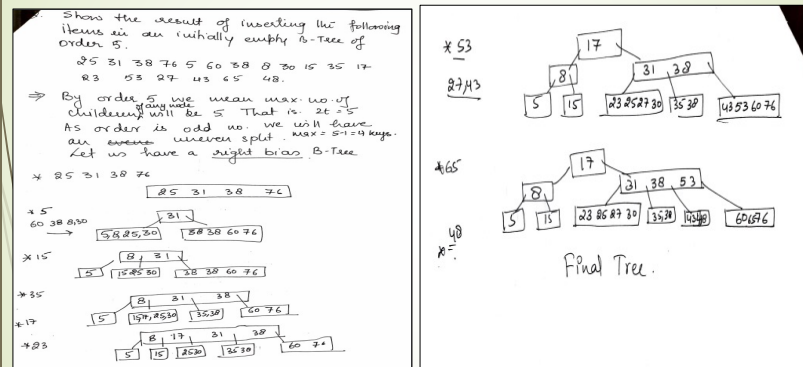 Show the result of inserting the following
items in an initially empty B-Tree of
order 5.
25 31 38 76 5 60 38 8 30 15 35 17
23 53 27 43 65 48.
⇒ By order 5 we mean max. no. of
children of any node will be 5 That is. 2t = 5
As order is odd no. we will have max = 5-1=4 keys.
an uneven split.
Let us have a right bias B-Tree
* 25 31 38 76
25 31 38 76
* 5
60 38 8,30
31
5,8,25,30 38 38 60 76
* 15
8, 31
5 15 25 30 38 38 60 76
* 35
8 31 38
5 15,17,25,30 35,38 60 76
* 17
* 23
8 17 31 38
5 15 25 30 35 38 60 76
* 53
27,43
17
8 31 38
5 15 23 25 27 30 35 38 43 53 60 76
* 65
17
8 31 38 53
5 15 23 25 27 30 35,38 43 48 60 65 76
48
Final Tree.